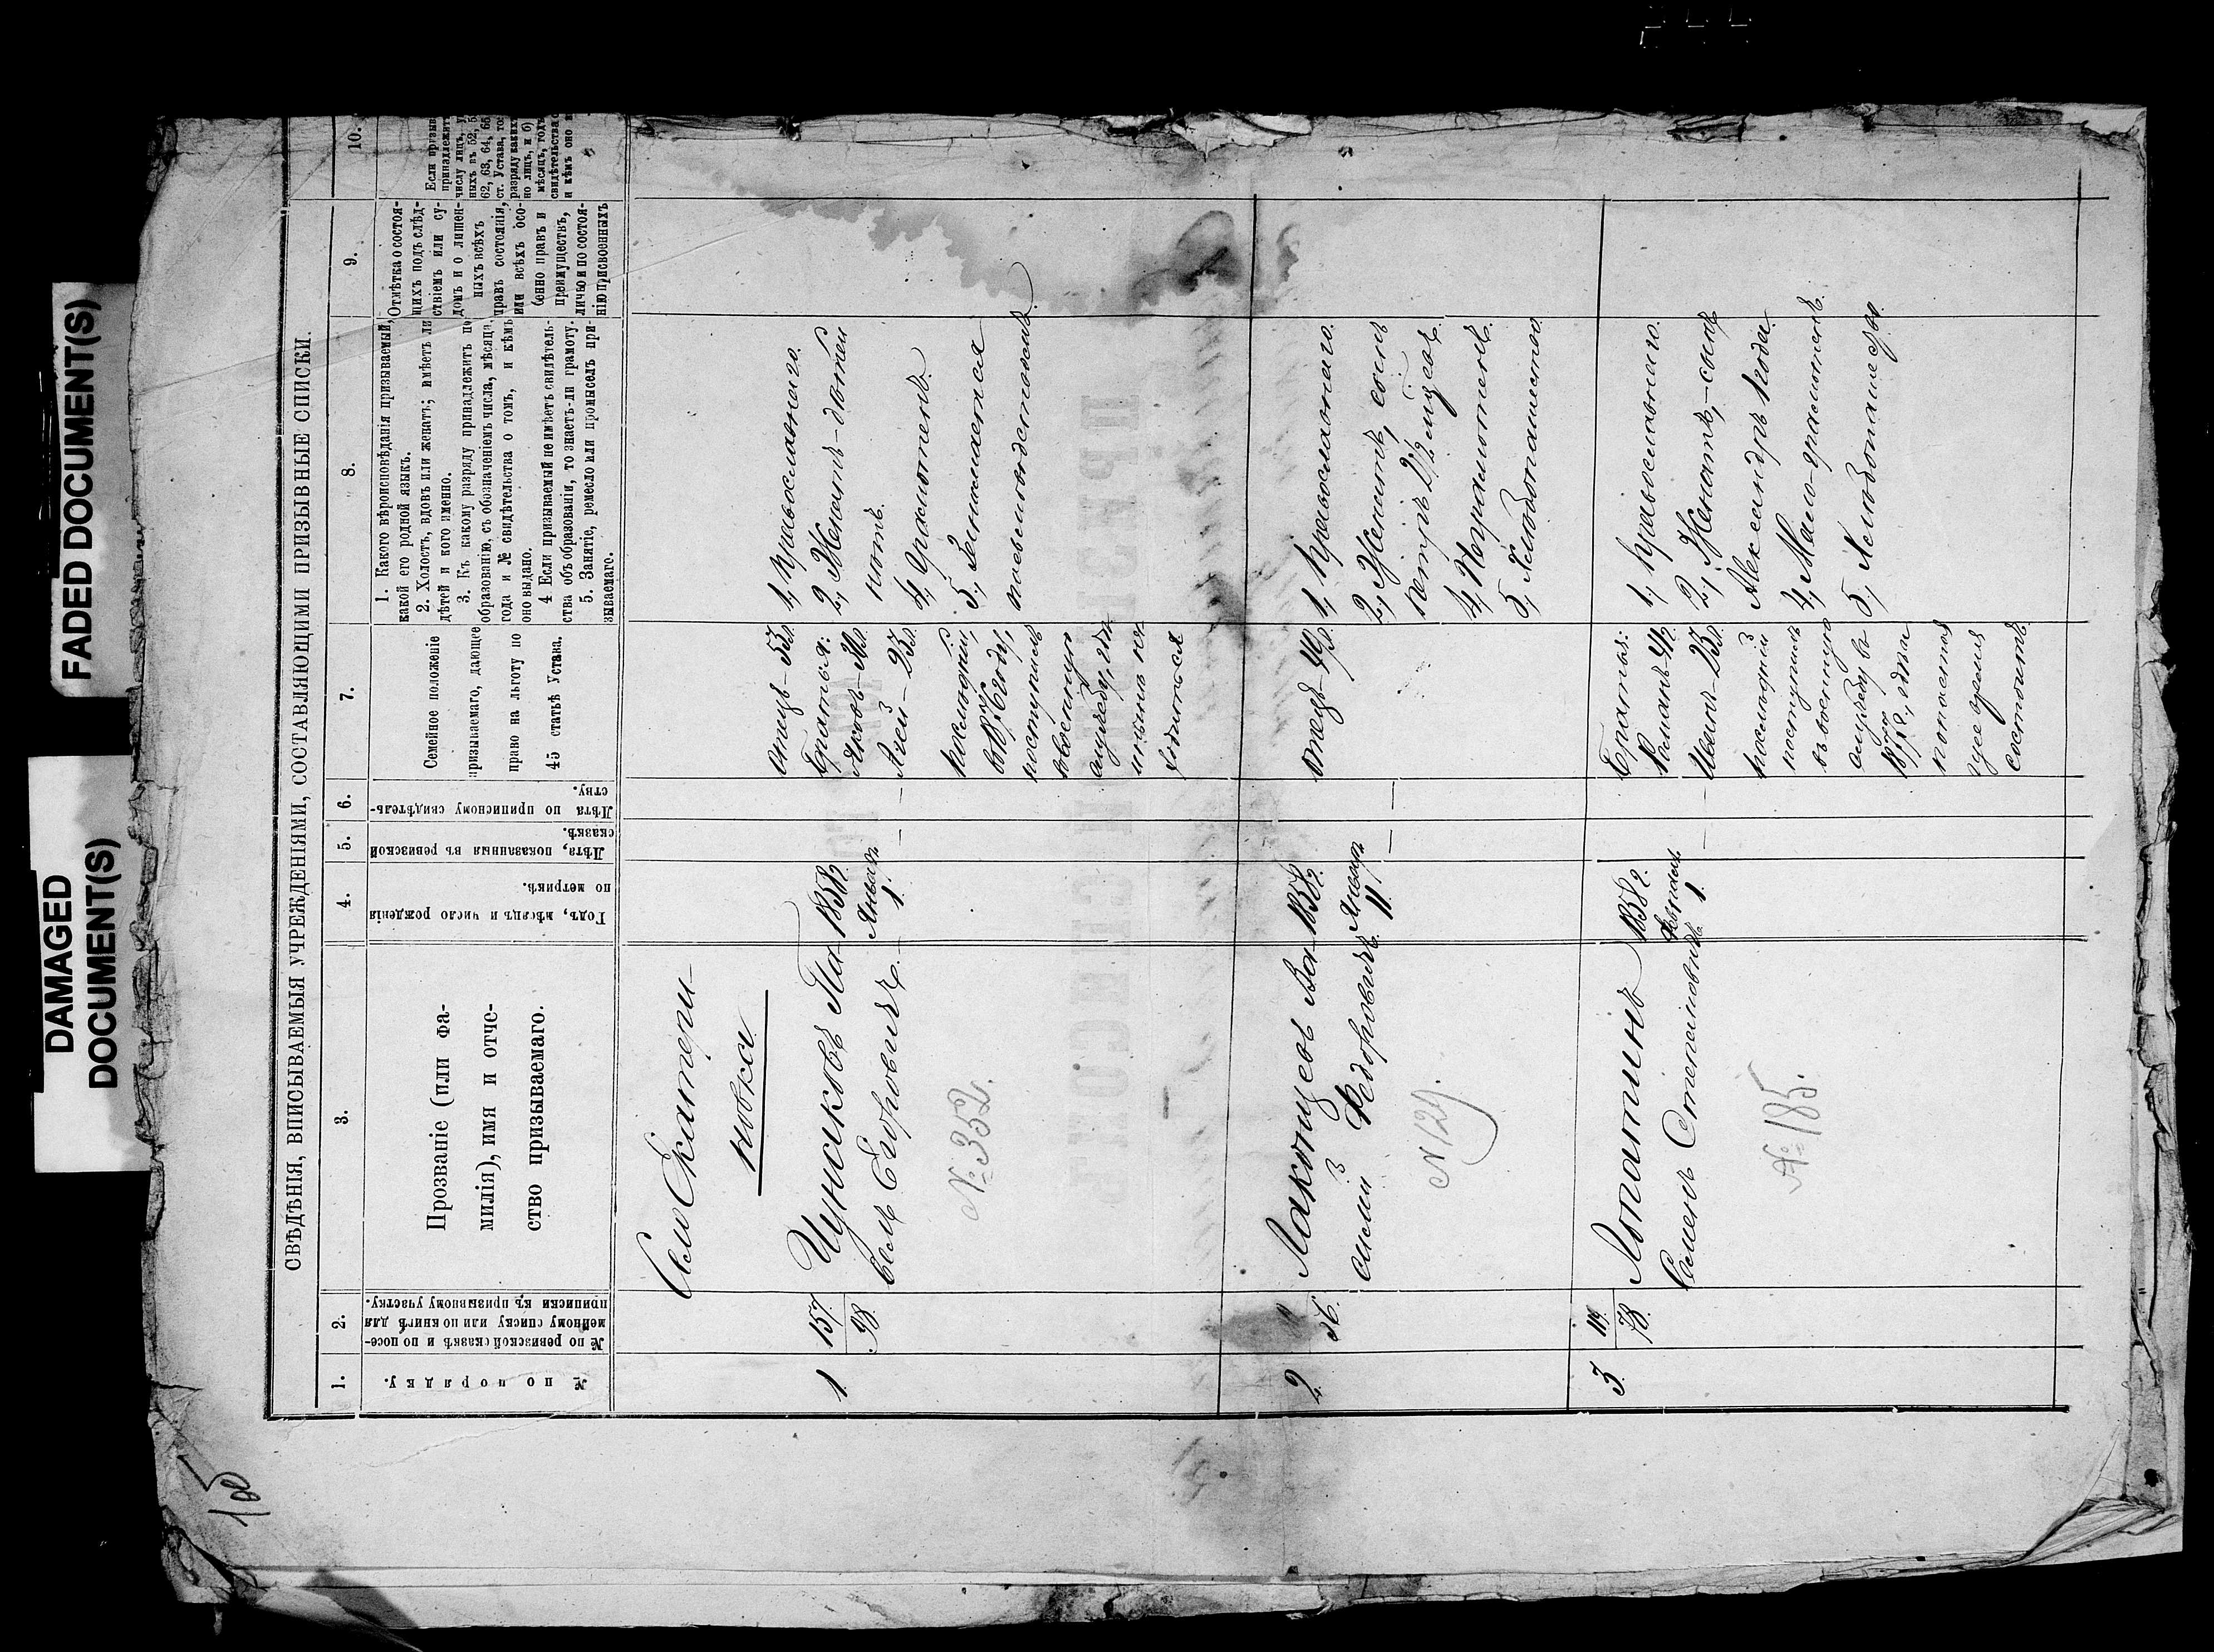 FADED DOCUMENT(S)
DAMAGED
DOCUMENT(S)
СВѢДѢНІЯ, ВПИСЫВАЕМЫЯ УЧРЕЖДЕНІЯМИ, СОСТАВЛЯЮЩИМИ ПРИЗЫВНЫЕ СПИСКИ.
1.
2.
3.
4.
5.
6.
7.
8.
9.
10.
№ по порядку.
№ по ревизской сказкѣ и по посе-
мейному списку или по книгѣ для
приписки къ призывному участку.
Прозваніе (или фа-
милія), имя и отче-
ство призываемаго.
Годъ, мѣсяцъ и число рожденія
по метрикѣ.
Лѣта, показанныя въ ревизской
сказкѣ.
Лѣта по приписному свидѣтель-
ству.
Семейное положеніе
призываемаго, дающее
право на льготу по
45 статьѣ Устава.
1. Какого вѣроисповѣданія призываемый,
какой его родной языкъ.
2. Холостъ, вдовъ или женатъ; имѣетъ ли
дѣтей и кого именно.
3. Къ какому разряду принадлежитъ по
образованію, съ обозначеніемъ числа, мѣсяца,
года и № свидѣтельства о томъ, и кѣмъ
оно выдано.
4 Если призываемый не имѣетъ свидѣтель-
ства объ образованіи, то знаетъ-ли грамоту.
5. Занятіе, ремесло или промыселъ при-
зываемаго.
Отмѣтка о состоя-
щихъ подъ слѣд-
ствіемъ или су-
домъ и о лишен-
ныхъ всѣхъ
правъ состоянія,
или всѣхъ осо-
бенно правъ и
преимуществъ,
лично и по состоя-
нію присвоенныхъ
Если призыв
принадлежит
числу лицъ, у
ныхъ въ 52, 5
62, 63, 64, 65
ст. Устава, то
разряду каких
но лицъ, и б)
мѣсяцъ, годъ
свидѣтельства
и кѣмъ оно
Село Екатери-
новка
1.
157.
98.
Чунаковъ Па-
велъ Егоровичъ.
№ 352.
1858 г.
Январь
1.
—
—
отецъ-53 л.
Братья:
Яковъ-30 л.
последній,
въ 1876 году,
поступилъ
1, Православнаго.
2, Женатъ-дѣтей
нѣтъ.
4, Грамотенъ.
5, Занимается
2.
56.
Лаконцевъ Ва-
силій Федоровичъ.
№ 129.
1858 г.
Январь
11.
—
—
отецъ-49 л.
1, Православнаго.
2, Женатъ, сынъ
петръ 2½ мѣсяц.
4, Неграмотенъ.
5, Хлебопашество.
3.
119.
78.
Лопатинъ
Семенъ Степановичъ.
№ 185.
1858 г.
Февраль
1.
—
Братья:
Романъ-41 г.
Иванъ-23 л.
последній
поступилъ
въ военную
службу въ
состоитъ.
1, Православнаго.
2, Женатъ,-сынъ
Александръ 1 года.
4, Мало-грамотенъ.
5, Хлебопашество.